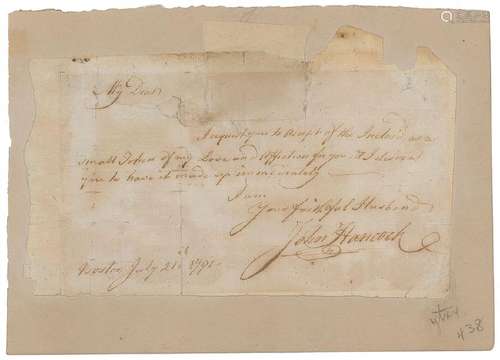 My Dear
I request you to Accept of the Inclos'd as a
small Token of my Love and Affection for you & I
you to have it made up immediately
I am
Your faithful Husband
John Hancock
Boston July 21st 1791
438